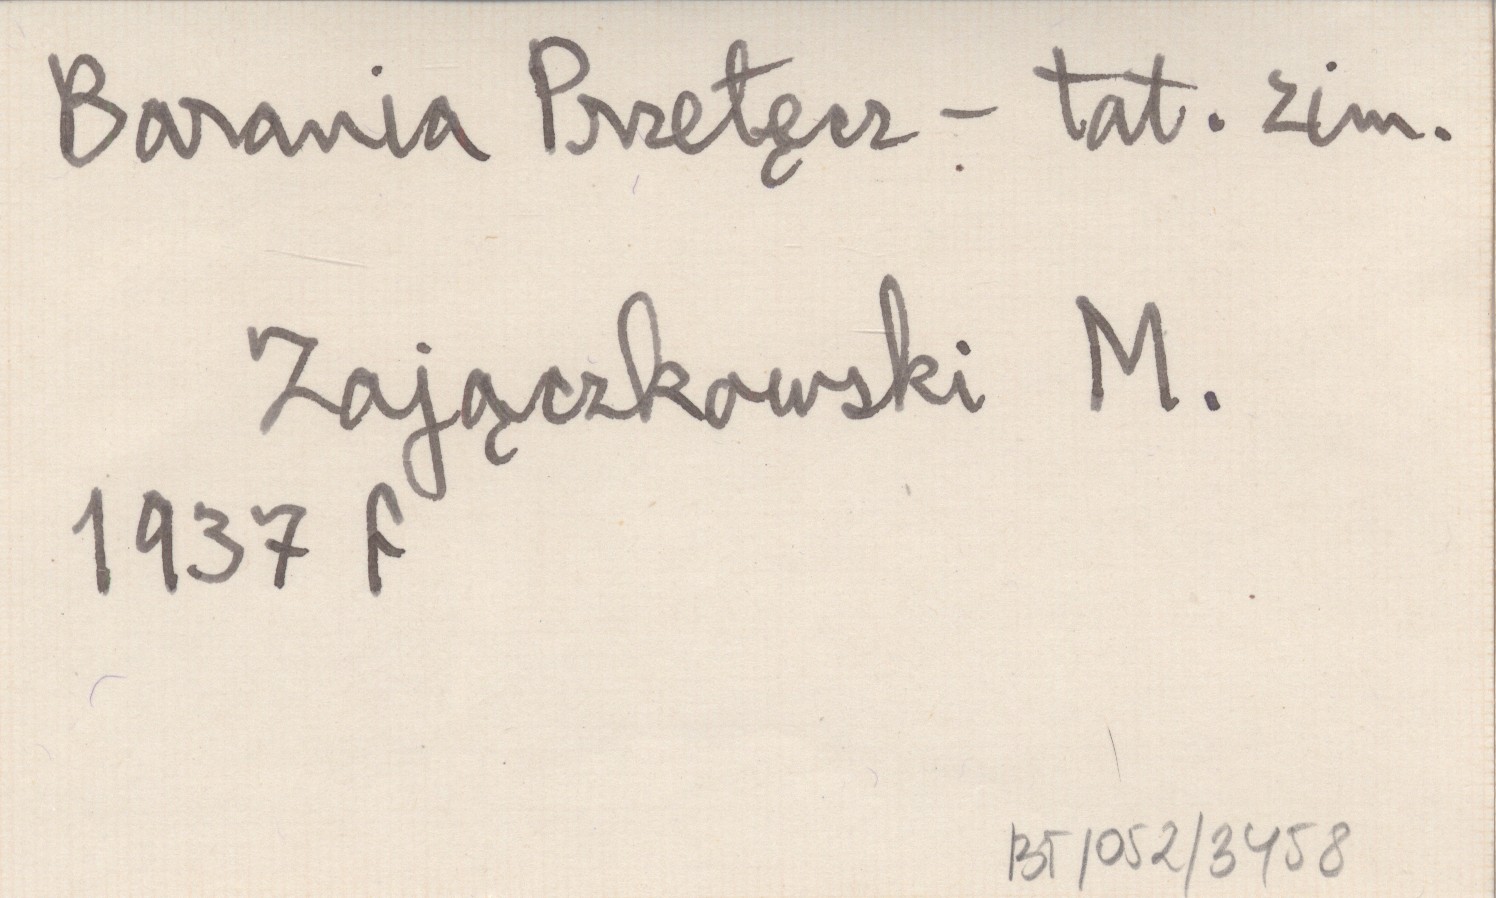 Barania Przełęcz - tat. zim.
Zajączkowski M.
1937 f
BT/052/3458